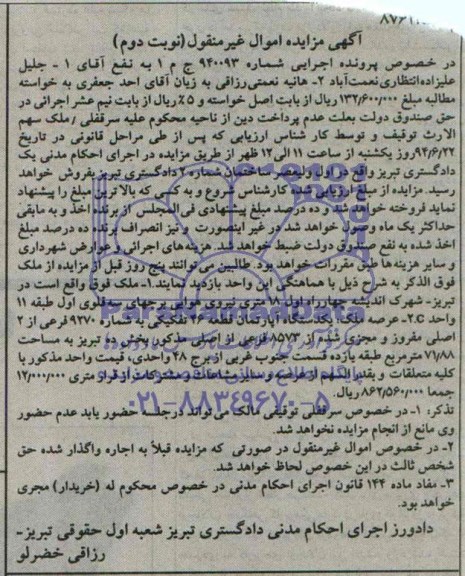 ۸۷۶۱
آگهی مزایده اموال غیرمنقول (نوبت دوم)
در خصوص پرونده اجرایی شماره ۹۴۰۰۹۳ ج م ۱ به نفع آقای ۱- جلیل
علیزاده انتظاری نعمت آباد ۲- هانیه نعمتی رزاقی به زیان آقای احد جعفری به خواسته
مطالبه مبلغ ۱۳۲/۶۰۰/۰۰۰ ریال از بابت اصل خواسته و ۵٪ ریال از بابت نیم عشر اجرائی در
حق صندوق دولت بعلت عدم پرداخت دین از ناحیه محکوم علیه سرقفلی / ملک سهم
الارث توقیف و توسط کارشناس ارزیابی که پس از طی مراحل قانونی در تاریخ
۹۴/۶/۲۲ روز یکشنبه در ساعت ۱۱ الی ۱۲ ظهر از طریق مزایده در اجرای احکام مدنی یک
دادگستری تبریز واقع در ولیعصر ساختمان شماره ۲ دادگستری تبریز بفروش خواهد
رسید. مزایده از مبلغ ارزیابی شده کارشناس شروع و به کسی که بالاترین مبلغ را پیشنهاد
نماید فروخته خواهد شد و ده درصد مبلغ پیشنهادی فی المجلس از برنده اخذ و به مابقی
حداکثر یک ماه وصول خواهد شد در غیر اینصورت و نیز انصراف برنده ده درصد مبلغ
اخذ شده به نفع صندوق دولت ضبط خواهد شد. هزینه های اجرائی و عوارض شهرداری
و سایر هزینه ها طبق مقررات خواهد بود. طالبین می توانند پنج روز قبل از مزایده از ملک
فوق الذکر به شرح ذیل با هماهنگی این واحد بازدید نمایند. ۱- ملک فوق واقع است در
تبریز- شهرک اندیشه چهارراه اول ۱۸ متری نیروی هوایی برجهای سه قلوی اول طبقه ۱۱
واحد C. ۲- عرصه ملک: یکدستگاه آپارتمان قطعه ۴۲ تفکیکی به شماره ۹۲۷۰ فرعی از ۲
اصلی مفروز و مجزی شده از ۸۵۷۳ فرعی از اصلی مذکور بخش ده تبریز به مساحت
۷۱/۸۸ مترمربع طبقه یازده قسمت جنوب غربی از برج ۴۸ واحدی، قیمت واحد مذکور با
کلیه متعلقات و بقدرالسهم از عرصه و سایر مشاعات و مشترکات از قرار متری ۱۲/۰۰۰/۰۰۰
جمعا ۸۶۲/۵۶۰/۰۰۰ ریال.
تذکر: ۱- در خصوص سرقفلی توقیفی مالک می تواند در جلسه حضور یابد عدم حضور
وی مانع از انجام مزایده نخواهد شد.
۲- در خصوص اموال غیرمنقول در صورتی که مزایده قبلاً به اجاره واگذار شده حق
شخص ثالث در این خصوص لحاظ خواهد شد.
۳- مفاد ماده ۱۴۴ قانون اجرای احکام مدنی در خصوص محکوم له (خریدار) مجری
خواهد بود.
دادورز اجرای احکام مدنی دادگستری تبریز شعبه اول حقوقی تبریز-
رزاقی خضرلو
ParsNamadData
۰۲۱-۸۸۳۴۹۶۷۰-۵